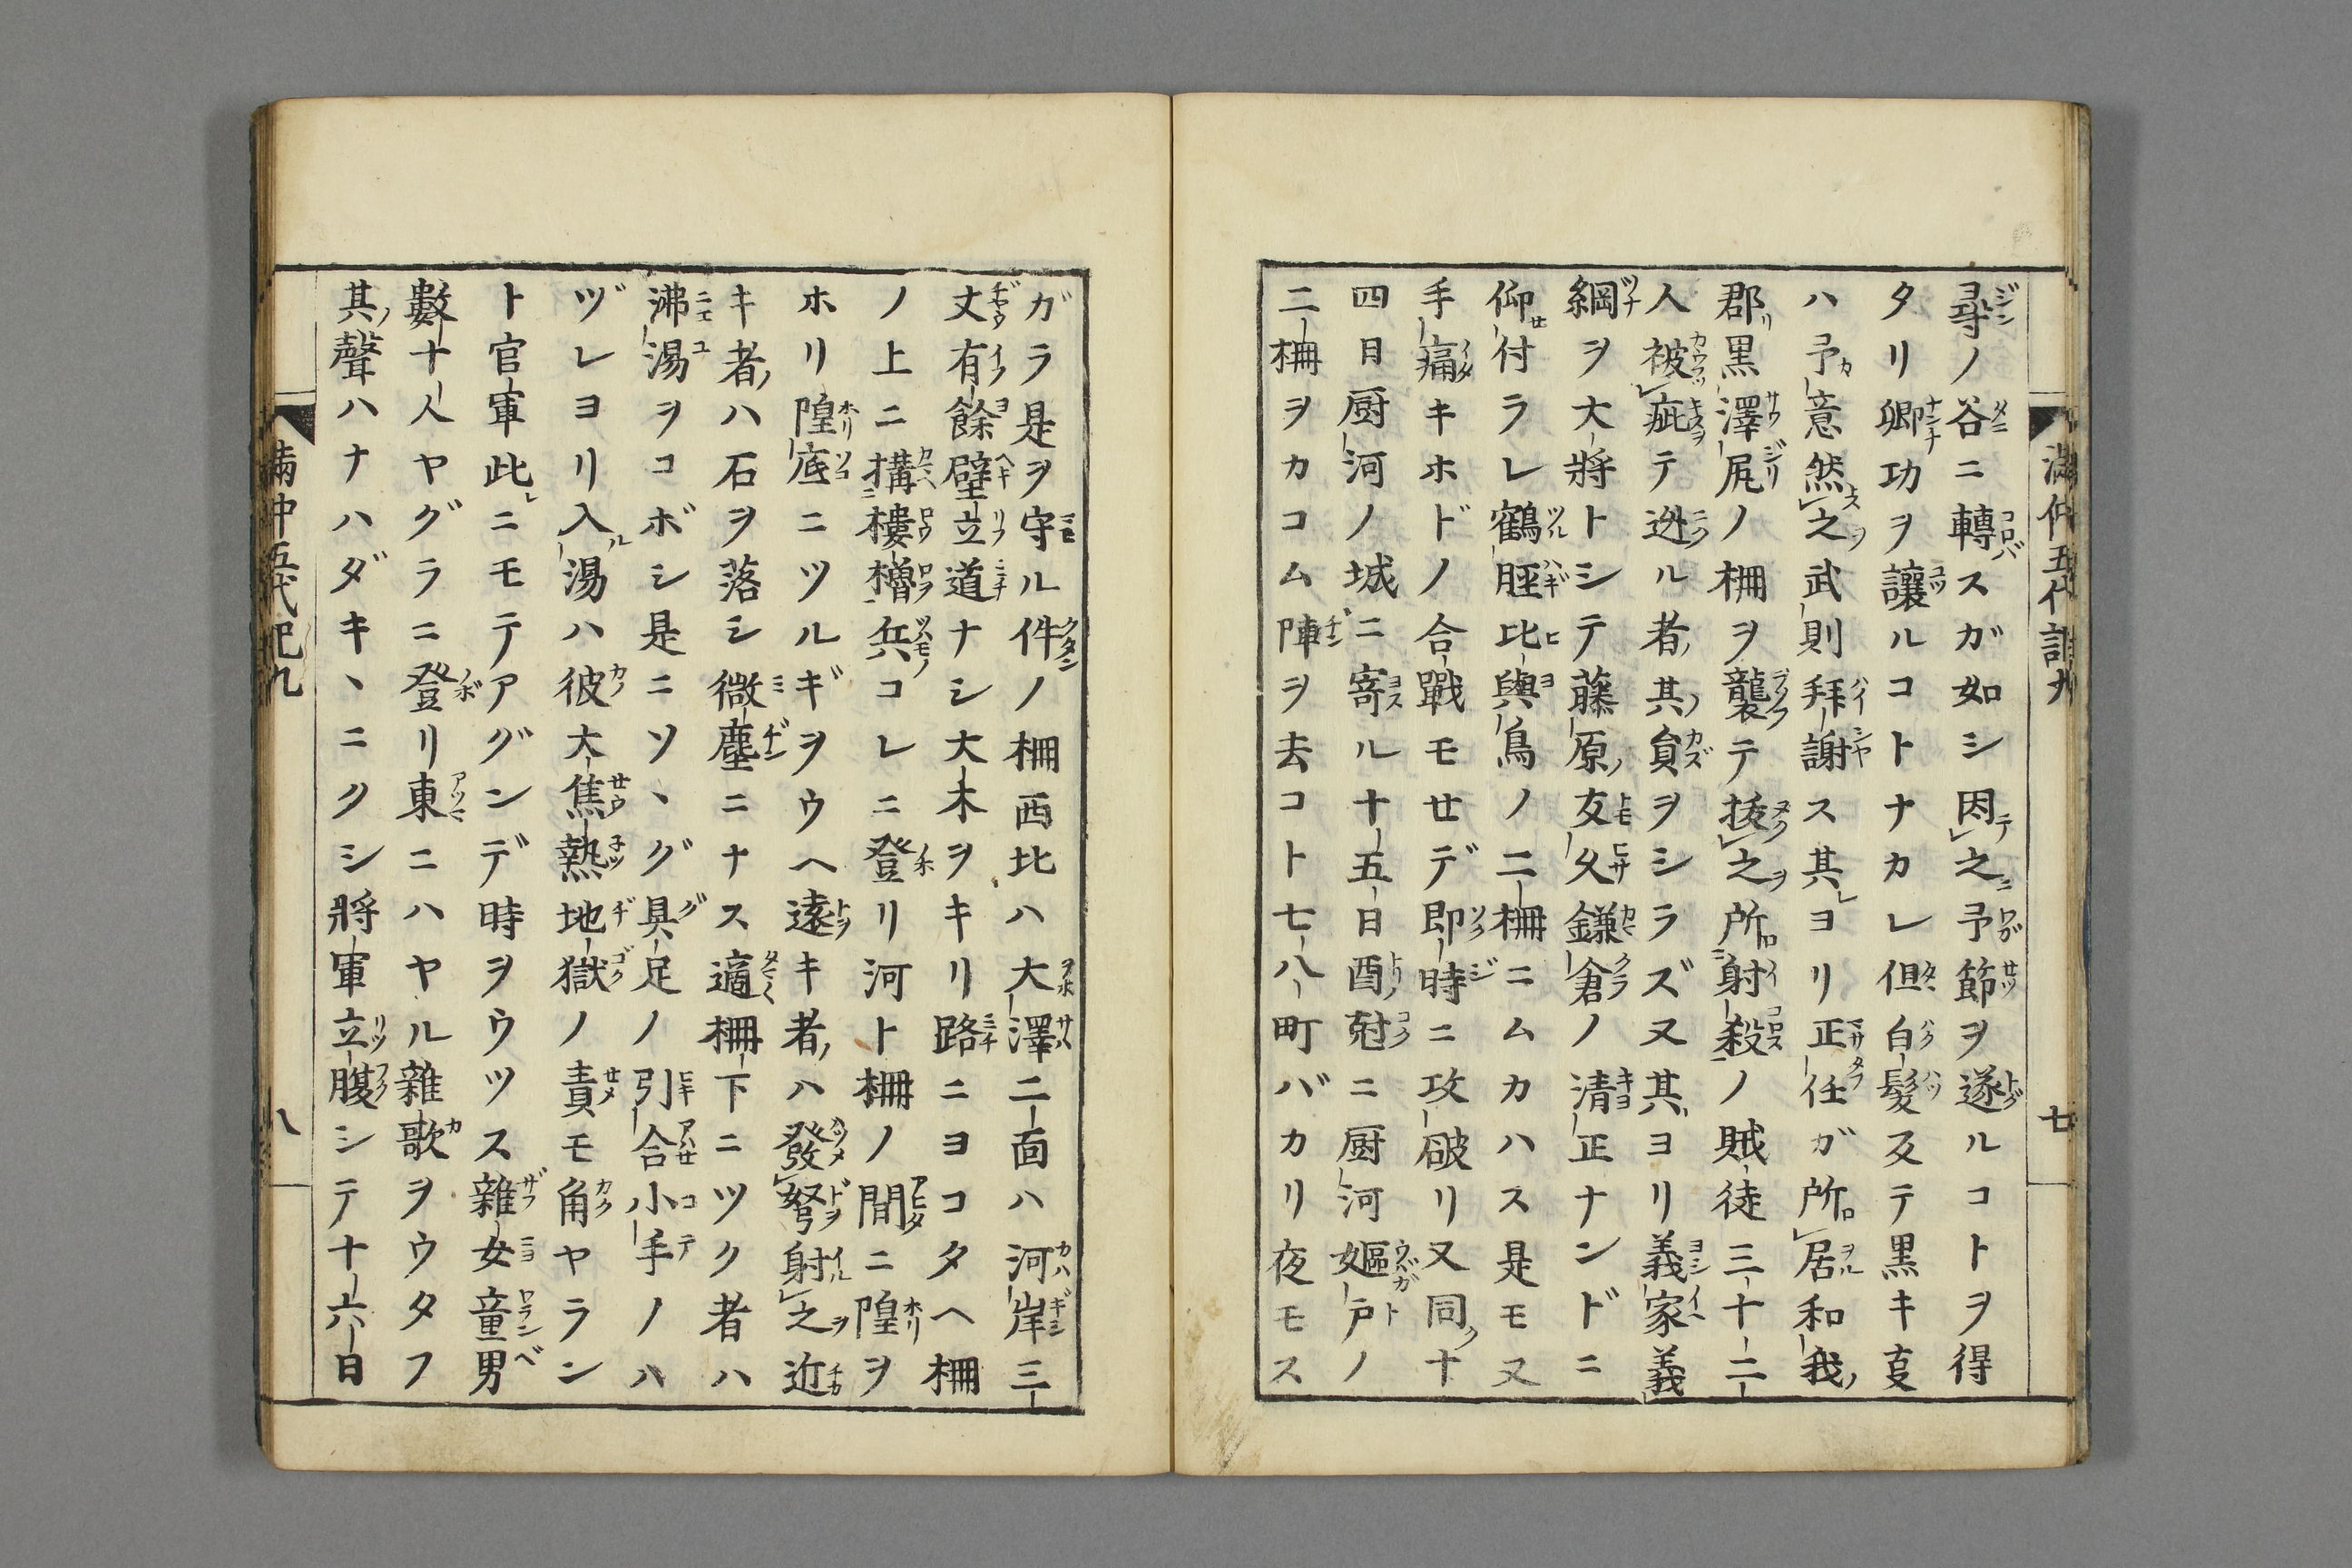 尋ノ谷ニ轉スガ如シ因テ之ニ予節ヲ遂ルコトヲ得
タリ卿功ヲ讓ルコトナカレ但白髮反テ黒キ㕝
ハ予意然之武則拜謝ス其ヨリ正任ガ所居和我
郡黒澤尻ノ柵ヲ襲テ抜之所射殺ノ賊徒三十二
人被疵テ迯ル者其員ヲシラズ又其ヨリ義家義
綱ヲ大將トシテ藤原ノ友久鎌倉ノ清正ナンドニ
仰付ラレ鶴脛比與鳥ノ二柵ニムカハス是モ又
手痛キホドノ合戰モセデ即時ニ攻破リ又同十
四日厨河ノ城ニ寄ル十五日酉尅ニ厨河嫗戸ノ
二柵ヲカコム陣ヲ去コト七八町バカリ夜モス
滿仲五代記九
七
ガラ是ヲ守ル件ノ柵西北ハ大澤二面ハ河岸三
丈有餘壁立道ナシ大木ヲキリ路ニヨコタヘ柵
ノ上ニ搆樓櫓兵コレニ登リ河ト柵ノ間ニ隍ヲ
ホリ隍底ニツルギヲウヘ遠キ者ハ發弩射之近
キ者ハ石ヲ落シ微塵ニナス適柵下ニツク者ハ
沸湯ヲコボシ是ニソヽグ具足ノ引合小手ノハ
ヅレヨリ入湯ハ彼大焦熱地獄ノ責モ角ヤラン
ト官軍此ニモテアグンデ時ヲウツス雜女童男
數十人ヤグラニ登リ東ニハヤル雜歌ヲウタフ
其聲ハナハダキヽニクシ將軍立腹シテ十六日
滿中五代記九
八